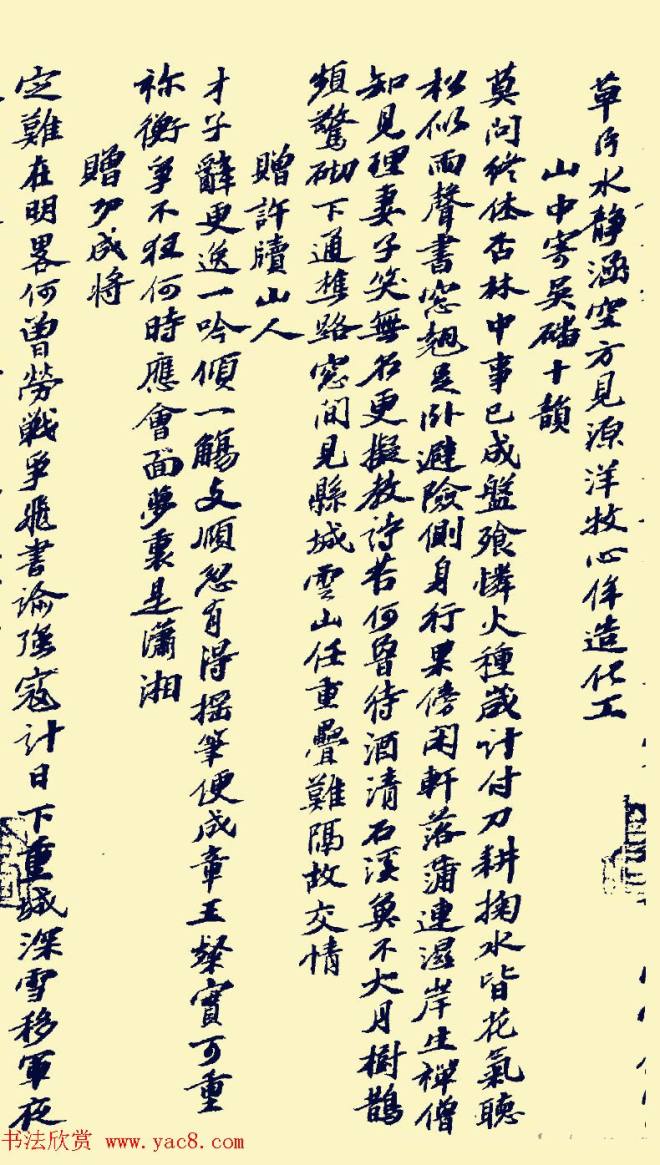 草水靜涵空方見源洋牧心侔造化工
山中寄吳磻十韻
莫問終休否林中事已成盤飧憐火種歲計付刀耕掬水皆花氣聽
松似雨聲書窓翹足卧避險側身行果傍閑軒落蒲連濕岸生禪僧
知見理妻子笑無名更擬教詩苦何曾待酒清石溪魚不大月樹鵲
頻驚砌下通樵路窓間見縣城雲山任重疊難隔故交情
贈許牘山人
才子辭更逸一吟傾一觴支順忽有得搖筆便成章王粲實可重
祢衡爭不狂何時應會面夢裏是瀟湘
贈功成將
定難在明畧何曾勞戰爭飛書論强寇計日下重城深雪移軍夜
书法欣赏 www.yac8.com